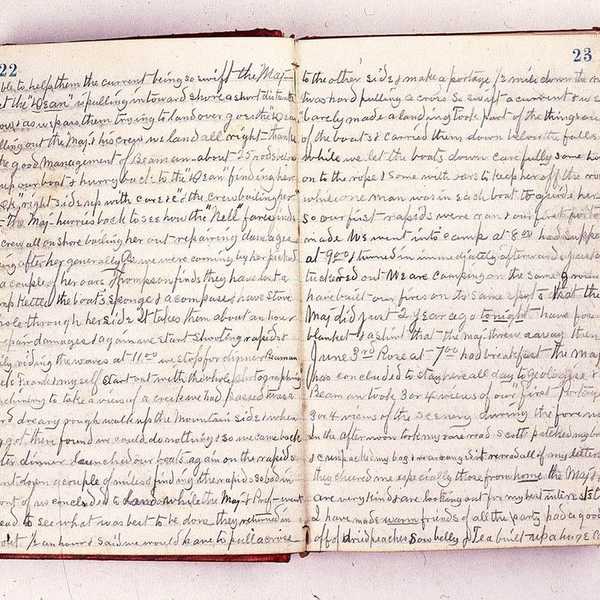 22
ble to help them the current being so swift the Maj-
at the "Dean" is pulling in toward shore a short distance
as we pass them trying to land over goes the Dean
ling out the Maj & his crew we land all right - thanks
the good management of Beaman - about 25 rods below
up our boat & hurry back to the "Dean" finding her
"right side up with care" & the crew bailing her
The Maj - hurries back to see how the "Nell" fares
crew all on shore bailing her out - repairing damages
ing after her generally as we were coming by her picked
a couple of her oars Thompson finds they have lost a
Kettle the boats sponge & a compass & have stove
hole through her side It takes them about an hour
pair damages & again we start shooting rapids &
riding the waves at 11.00 we stop for dinner Beaman
& myself start out with the whole photographing
to take a view of a creek we had passed
dreary rough walk up the Mountain side & when
got there found we could do nothing & so we came back
ter dinner launched our boats again on the rapids
went down a couple of miles finding the rapids so bad in
ont of us concluded to land while the Maj & Prof - went
ead to see what was best to be done they returned in
an hour & said we would have to pull across
23
to the other side & make a portage ½ mile down the
was hard pulling across so swift a current & we
barely made a landing took part of the things out
of the boats & carried them down below the falls
while we let the boats down carefully some
on to the rope & some with oars to keep her off the
while one man was in each boat to guide her
so our first rapids were ran & our first
made We went into camp at 8.00 had supper
at 9.00 & turned in immediately afterward
tuckered out We are camping on the same
have built our fires on the same spots that the
Maj did just 2 years ago tonight - have
blanket & a shirt that the maj threw away then
June 3rd Rose at 7.00 had breakfast the Maj
has concluded to stay here all day to Geologize &
Beaman took 3 or 4 views of our "first portage
3 or 4 views of the scenery during the foren
In the afternoon took my gun read Scott patched my
& unpacked my bag & reread all of my letters
they cheered me especially those from home the Maj &
are very kind & are looking out for my best interests
I have made warm friends of all the party had a good
off of dried peaches Sow belly & Tea built up a huge